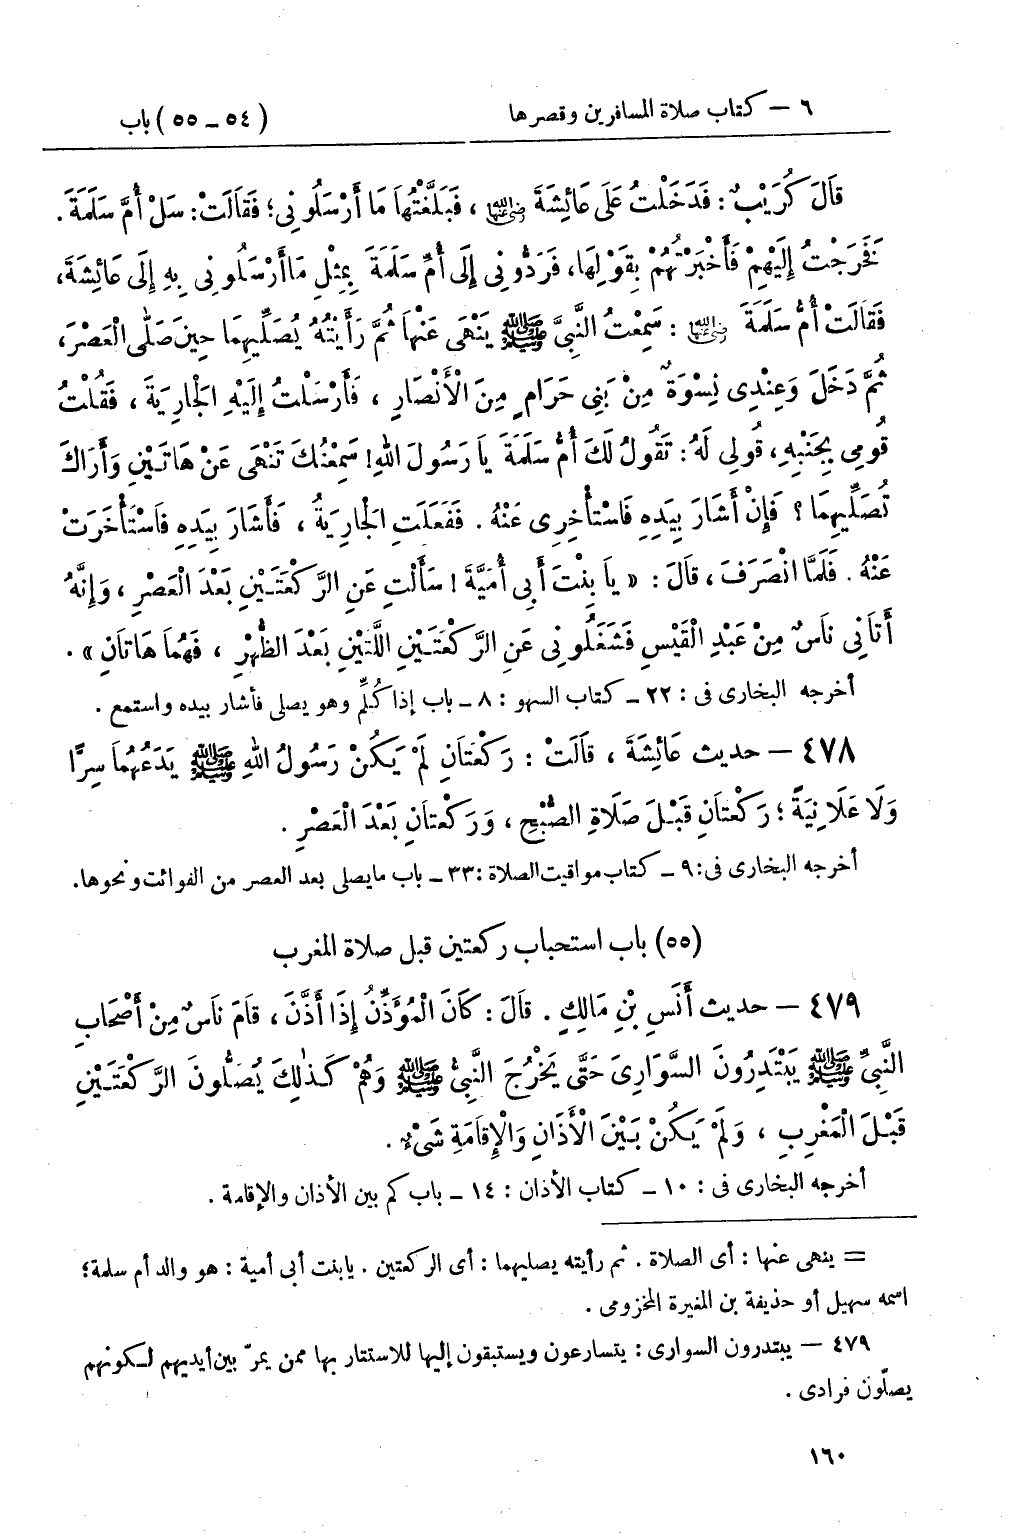 ٦ – كتاب صلاة المسافرين وقصرها
(٥٤ – ٥٥) باب
قَالَ كُرَيْبٌ : فَدَخَلْتُ عَلَى عَائِشَةَ رضي الله عنها ، فَبَلَّغْتُهَا مَا أَرْسَلُونِى ؛ فَقَالَتْ : سَلْ أُمَّ سَلَمَةَ .
فَخَرَجْتُ إِلَيْهِمْ فَأَخْبَرْتُهُمْ بِقَوْلِهَا ، فَرَدُّونِى إِلَى أُمِّ سَلَمَةَ بِمِثْلِ مَا أَرْسَلُونِى بِهِ إِلَى عَائِشَةَ ،
فَقَالَتْ أُمُّ سَلَمَةَ رضي الله عنها : سَمِعْتُ النَّبِىَّ ﷺ يَنْهَى عَنْهَا ثُمَّ رَأَيْتُهُ يُصَلِّيهِمَا حِينَ صَلَّى الْعَصْرَ ،
ثُمَّ دَخَلَ وَعِنْدِى نِسْوَةٌ مِنْ بَنِى حَرَامٍ مِنَ الْأَنْصَارِ ، فَأَرْسَلْتُ إِلَيْهِ الْجَارِيَةَ ، فَقُلْتُ
قُومِى بِجَنْبِهِ ، قُولِى لَهُ : تَقُولُ لَكَ أُمُّ سَلَمَةَ يَا رَسُولَ اللهِ ! سَمِعْتُكَ تَنْهَى عَنْ هَاتَيْنِ وَأَرَاكَ
تُصَلِّيهِمَا ؟ فَإِنْ أَشَارَ بِيَدِهِ فَاسْتَأْخِرِى عَنْهُ . فَفَعَلَتِ الْجَارِيَةُ ، فَأَشَارَ بِيَدِهِ فَاسْتَأْخَرَتْ
عَنْهُ . فَلَمَّا انْصَرَفَ ، قَالَ : « يَا بِنْتَ أَبِى أُمَيَّةَ ! سَأَلْتِ عَنِ الرَّكْعَتَيْنِ بَعْدَ الْعَصْرِ ، وَإِنَّهُ
أَتَانِى نَاسٌ مِنْ عَبْدِ الْقَيْسِ فَشَغَلُونِى عَنِ الرَّكْعَتَيْنِ اللَّتَيْنِ بَعْدَ الظُّهْرِ ، فَهُمَا هَاتَانِ » .
أخرجه البخارى فى : ٢٢ – كتاب السهو : ٨ – باب إذا كُلِّم وهو يصلى فأشار بيده واستمع .
٤٧٨ – حديث عَائِشَةَ ، قَالَتْ : رَكْعَتَانِ لَمْ يَكُنْ رَسُولُ اللهِ ﷺ يَدَعُهُمَا سِرًّا
وَلَا عَلَانِيَةً ؛ رَكْعَتَانِ قَبْلَ صَلَاةِ الصُّبْحِ ، وَرَكْعَتَانِ بَعْدَ الْعَصْرِ .
أخرجه البخارى فى : ٩ – كتاب مواقيت الصلاة : ٣٣ – باب ما يصلى بعد العصر من الفوائت ونحوها .
(٥٥) باب استحباب ركعتين قبل صلاة المغرب
٤٧٩ – حديث أَنَسِ بْنِ مَالِكٍ . قَالَ : كَانَ الْمُؤَذِّنُ إِذَا أَذَّنَ ، قَامَ نَاسٌ مِنْ أَصْحَابِ
النَّبِىِّ ﷺ يَبْتَدِرُونَ السَّوَارِىَ حَتَّى يَخْرُجَ النَّبِىُّ ﷺ وَهُمْ كَذٰلِكَ يُصَلُّونَ الرَّكْعَتَيْنِ
قَبْلَ الْمَغْرِبِ ، وَلَمْ يَكُنْ بَيْنَ الْأَذَانِ وَالْإِقَامَةِ شَىْءٌ .
أخرجه البخارى فى : ١٠ – كتاب الأذان : ١٤ – باب كم بين الأذان والإقامة .
= ينهى عنها : أى الصلاة . ثم رأيته يصليهما : أى الركعتين . يا بنت أبى أمية : هو والد أم سلمة ؛
اسمه سهيل أو حذيفة بن المغيرة المخزومى .
٤٧٩ – يبتدرون السوارى : يتسارعون ويستبقون إليها للاستتار بها ممن يمرّ بين أيديهم لكونهم
يصلّون فرادى .
١٦٠